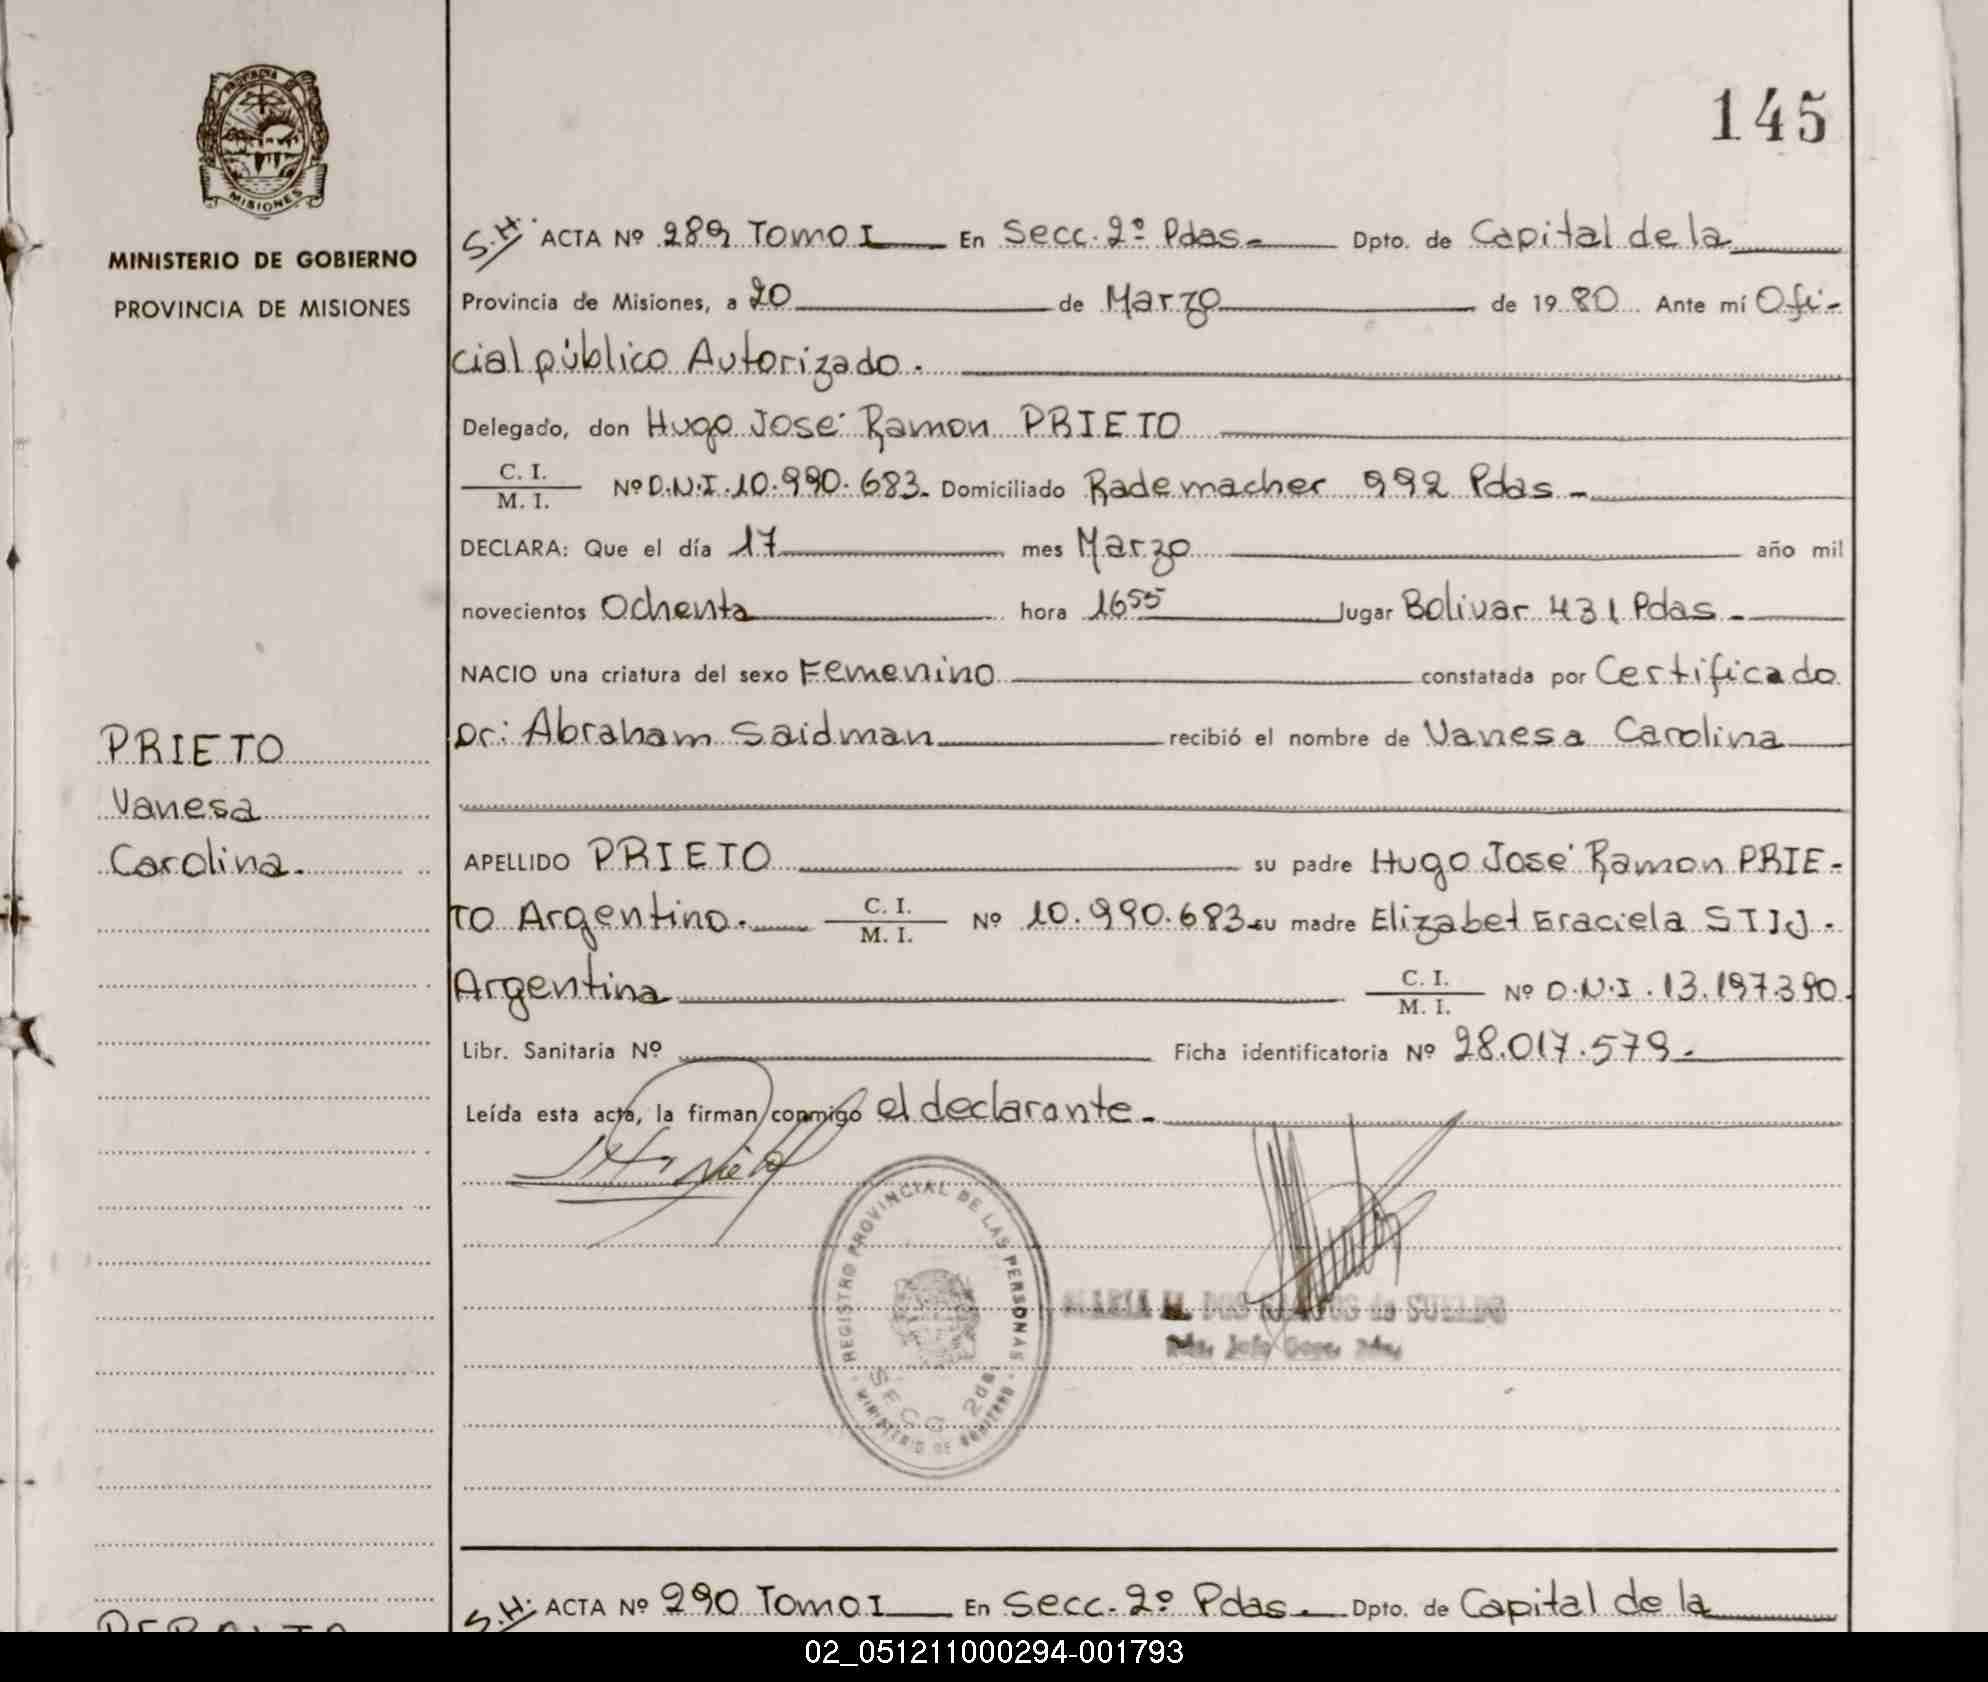 PROVINCIA DE
MISIONES
MINISTERIO DE GOBIERNO
PROVINCIA DE MISIONES
145
S.H. ACTA Nº 289 Tomo I En Secc. 2º Pdas. Dpto. de Capital de la
Provincia de Misiones, a 20 de Marzo de 1980 Ante mí Ofi-
cial público Autorizado.
Delegado, don Hugo José Ramon PRIETO
C. I.
M. I.
Nº D.N.I. 10.990.683. Domiciliado Rademacher 992 Pdas -
DECLARA: Que el día 17 mes Marzo año mil
novecientos Ochenta hora 16 55 lugar Bolivar 431 Pdas -
NACIO una criatura del sexo Femenino constatada por Certificado
Dr: Abraham Saidman recibió el nombre de Vanesa Carolina
PRIETO
Vanesa
Carolina.
APELLIDO PRIETO su padre Hugo José Ramon PRIE-
TO Argentino. C. I. M. I. Nº 10.990.683 su madre Elizabet Graciela STIJ.
Argentina C. I. M. I. Nº D.N.I. 13.197.390.
Libr. Sanitaria Nº Ficha identificatoria Nº 28.017.579.
Leída esta acta, la firman conmigo el declarante -
REGISTRO PROVINCIAL DE LAS PERSONAS
SECC. 2da
MINISTERIO DE GOBIERNO
MARIA M. DOS SANTOS de SUELDO
S.H. ACTA Nº 290 Tomo I En Secc. 2º Pdas. Dpto. de Capital de la
02_051211000294-001793